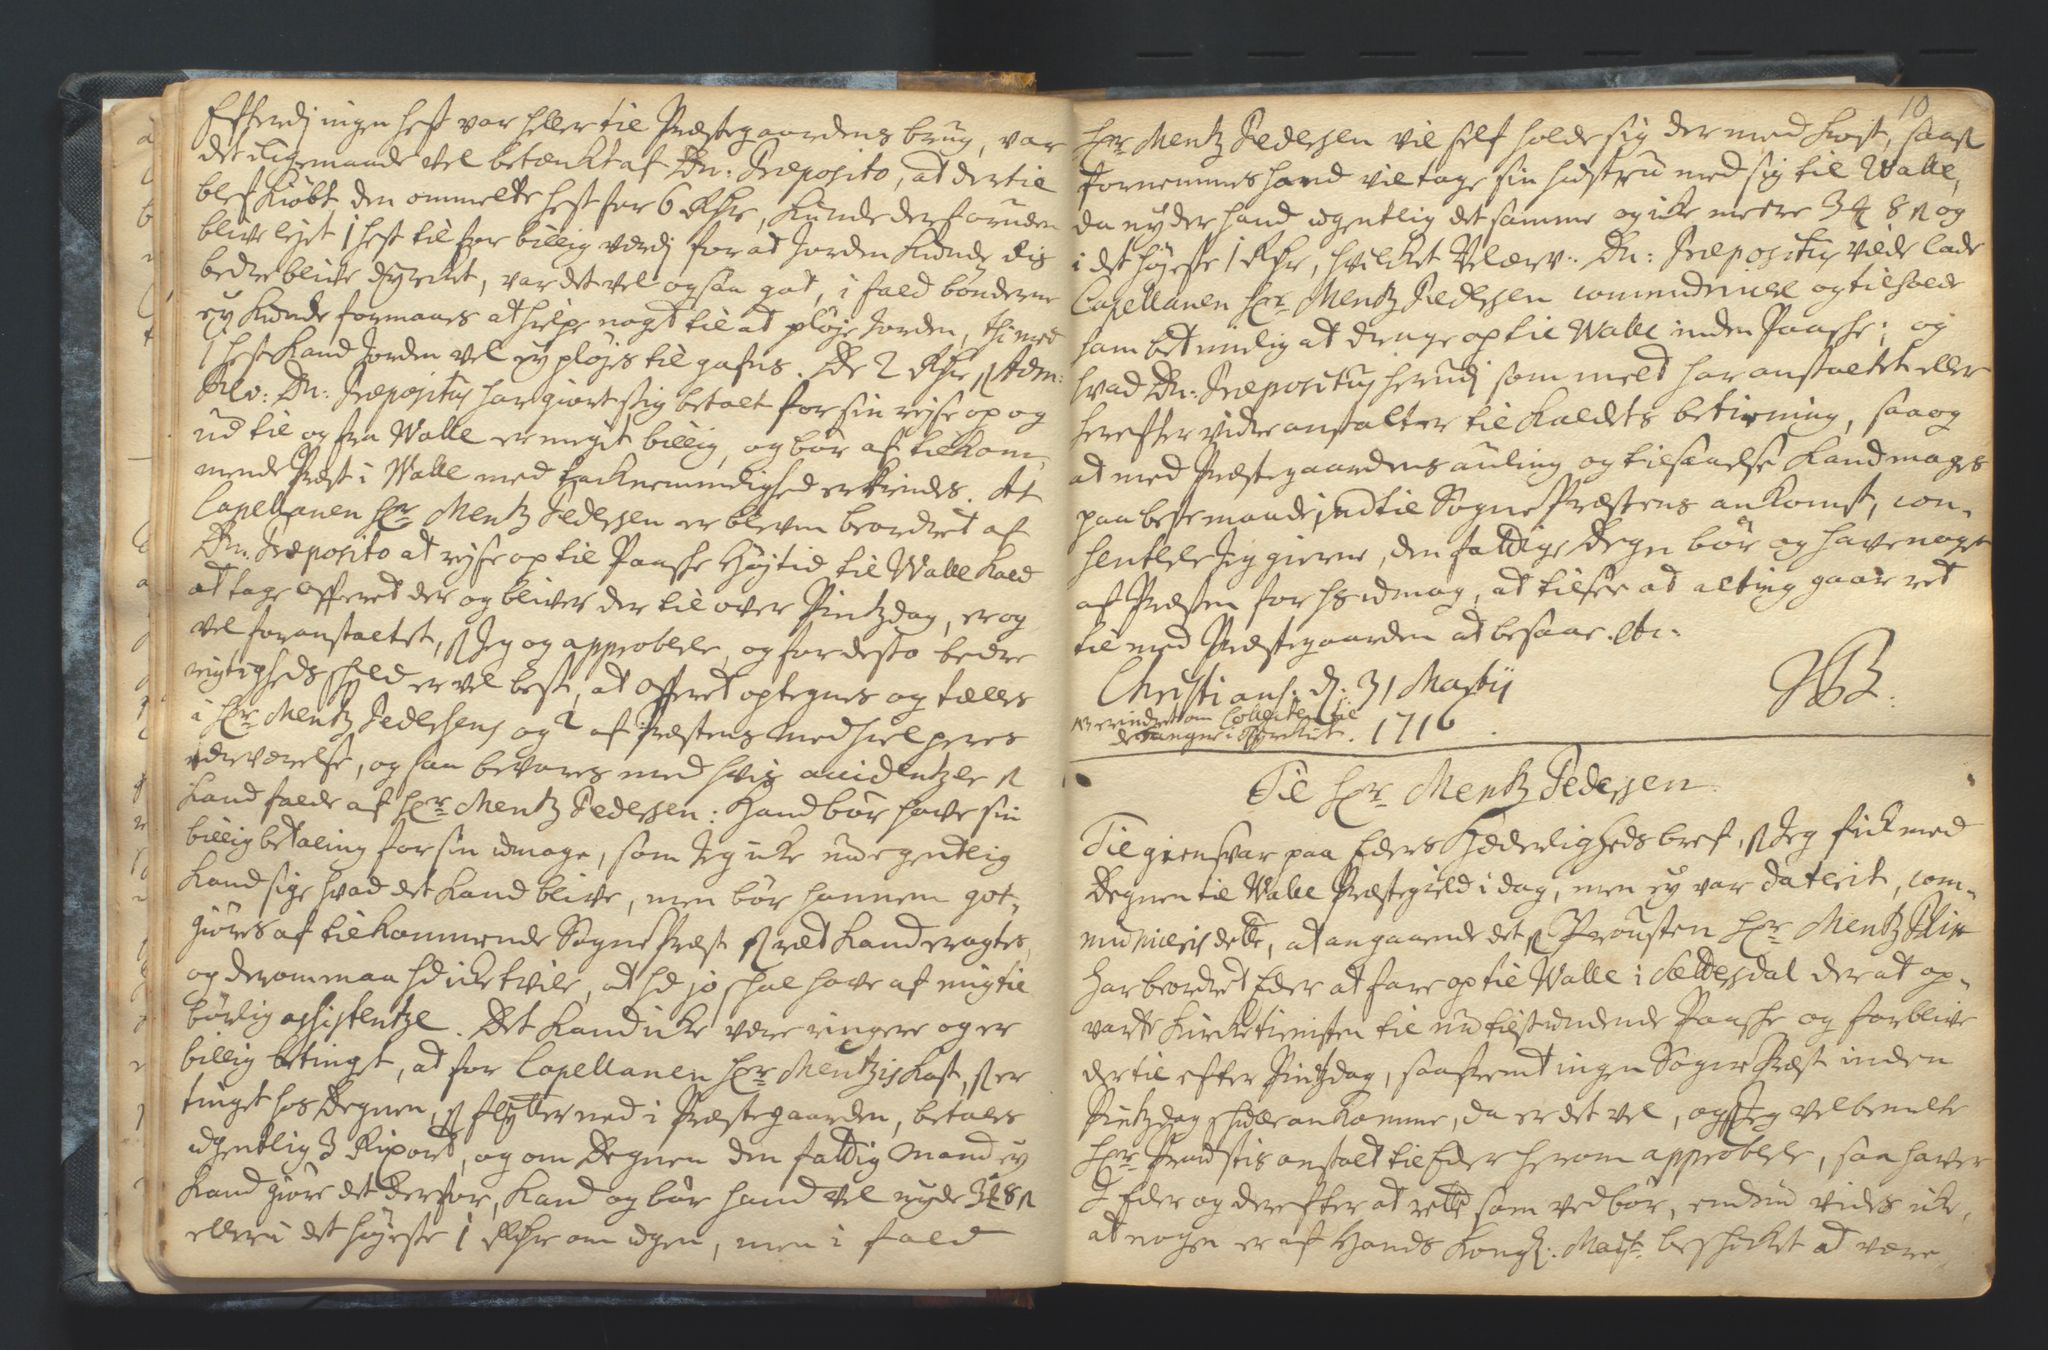 Efterdj ingen hest var heller til Præstegaardens brug, var
det ligemaade vel betænkt af Dn: Præposito, at dertil
blef kiøbt den ommelte hest for 6 Rdr, kunde der foruden
blive lejet 1 hest til for billig værdj for at Jorden kunde dis
bedre blive dyrcket, var det vel ogsaa got, i fald bønderne
ey kunde formaaes at hielpe noget til at pløje Jorden, thi med
1 hest kand Jorden vel ey pløjes til gafns. De 2 Rdr Adm:
Rev: Dn: Præpositus har giort sig betalt for sin rejse op og
ud til og fra Walle er meget billig, og bør af tilkom-
mende Præst i Walle med tacknemmelighed erkiendes. At
Capellanen Hr Mentz Pedersen er bleven beordret af
Dn. Præposito at rejse op til Paaske Højtid til Walle kald
at tage Offeret der og bliver der til over Pintzdag, er og
vel foranstaltet, Jeg og approberer, og for desto bedre
rigtigheds skyld er vel best, at Offeret optegnes og tælles
i Hr Mentz Pedersens og 2 af Præstens Medhielperes
nærværelse, og saa bevares med hvis accidentzer
kand falde af Hr Mentz Pedersen: Hand bør have sin
billig betaling for sin umage, som Jeg icke nu egentlig
kand sige hvad det kand blive, men bør hannem got-
giøres af tilkommende Sogne Præst ret kand eragtes,
og derom maa hd icke tvile, at hd jo skal have af mig til
børlig assistentze. Det kand icke være ringere og er
billig betinget, at for Capellanen Hr Mentzis kost, er
tinget hos Degnen, flytter ned i Præstegaarden, betales
ugentlig 3 Rixort, og om Degnen den fattig Mand ey
kand giøre det derfor, kand og bør hand vel nyde 3 8
eller i det højeste 1 Rdr om ugen, men i fald
10
Hr Mentz Pedersen vil self holde sig der med kost, saasom
fornemmes hand vil tage sin hustru med sig til Walle,
da nyder hand ugentlig det samme og icke mere 3 8 og
i det højeste 1 Rdr, hvilket Dn: Præpositus vilde lade
Capellanen Hr Mentz Pedersen communicere og tilholde
ham betimelig at drage op til Walle inden Paaske; og
hvad Dn. Præpositus herudj som meldt har anstaltet eller
herefter vidre anstalter til kaldets betiening, saa og
at med Præstegaardens auling og tilsaaelse kand mages
paa beste maade indtil Sogne Præstens ankomst, con-
senterer Jeg gierne, den fattige Degn bør og have noget
af Præsten for hs umag, at tilsee at alting gaar ret
til med Præstegaarden at besaae. etc.
Christians. d: 31 Martij
erindret om Collecten til
de fangne i 1716.
Til Hr Mentz Pedersen.
Til giensvar paa Eders Hæderligheds bref, Jeg fick med
Degnen til Walle Præstegield i dag, men ey var daterit, com-
municeris dette, at angaaende det Prousten Hr Mentz
har beordret Eder at fare op til Walle i Sættersdal der at op-
varte kircketienisten til nu tilstundende Paaske og forblive
der til efter Pintzdag, saafremt ingen Sogne Præst inden
Pintzdag skulle ankomme, da er det vel, og Jeg velbemelte
Hr Proustis anstalt til Eder herom approberer, saa haver
I Eder og derefter at rette som ved bør, endnu vides icke,
at nogen er af Hands Kongl: Mayt beskicket at være